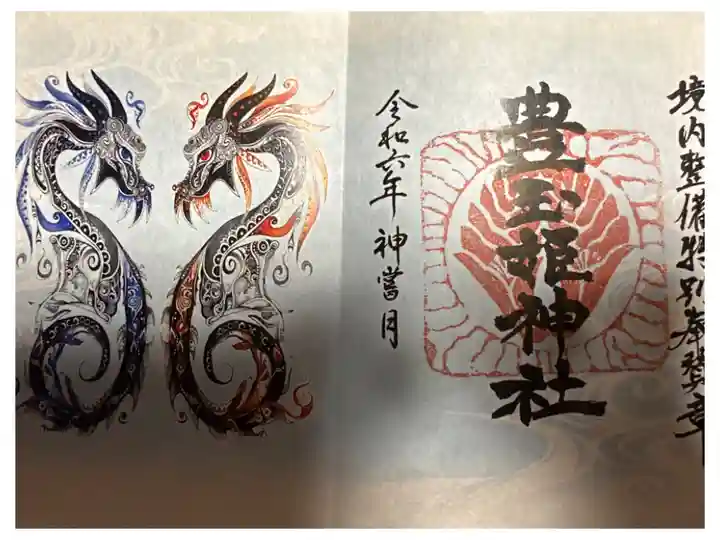 境内整備特別奉賛章
豊玉姫神社
令和六年 神嘗月